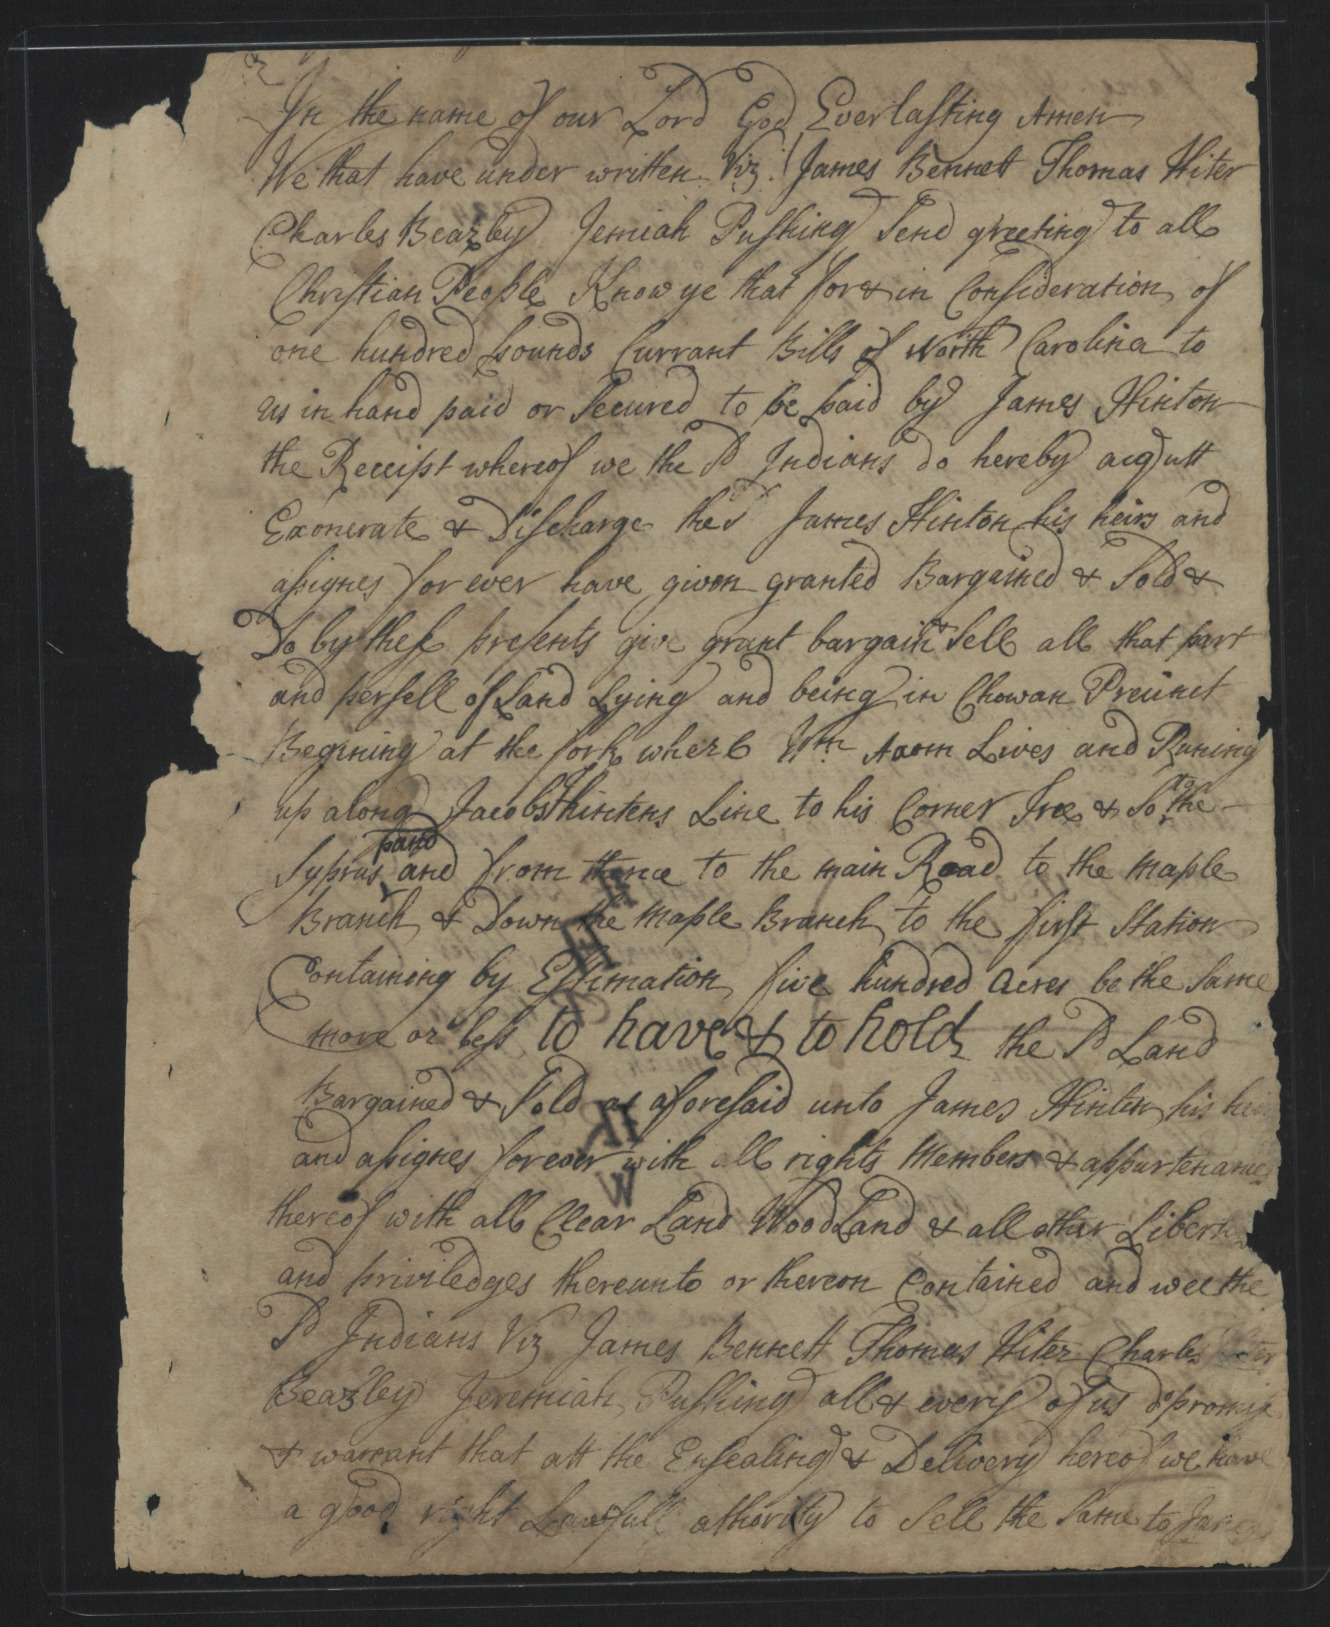 In the name of our Lord God Everlasting Amen
We that have under written Viz! James Bennett Thomas Hiter
Charles Beazby Jemiah Pushing Send greeting to all
Christian People Know ye that for & in Consideration of
one hundred pounds Currant Bills of North Carolina to
us in hand paid or Secured to be paid by James Hinton
the Receipt whereof we the Sd Indians do hereby acqutt
Exonerate & Discharge the Sd James Hinton his heirs and
assignes for ever have given granted Bargained & Sold &
Do by these presents give grant bargain & Sell all that part
and persell of Land Lying and being in Chowan Precinct
Begining at the fork where Wm Aaorn Lives and Runing
up along Jacobs Hintens Line to his Corner Tree & So to the
Syprus pand and from thence to the main Road to the maple
Branch & Down the maple Branch to the first Station
Containing by Estimation five hundred acres be the Same
more or less to have & to hold the Sd Land
Bargained & Sold as aforesaid unto James Hinton his hei
and assignes forever with all rights Members & appurtenames
thereof with all Clear Land Wood Land & all other Libert
and priviledges thereunto or thereon Contained and wee the
Sd Indians Viz James Bennett Thomas Hiter Charles
Beazley Jeremiah Pushing all & every of us do promise
& warrant that att the Ensealing & Delivery hereof we have
a good right Lawfull athority to Sell the Same to James